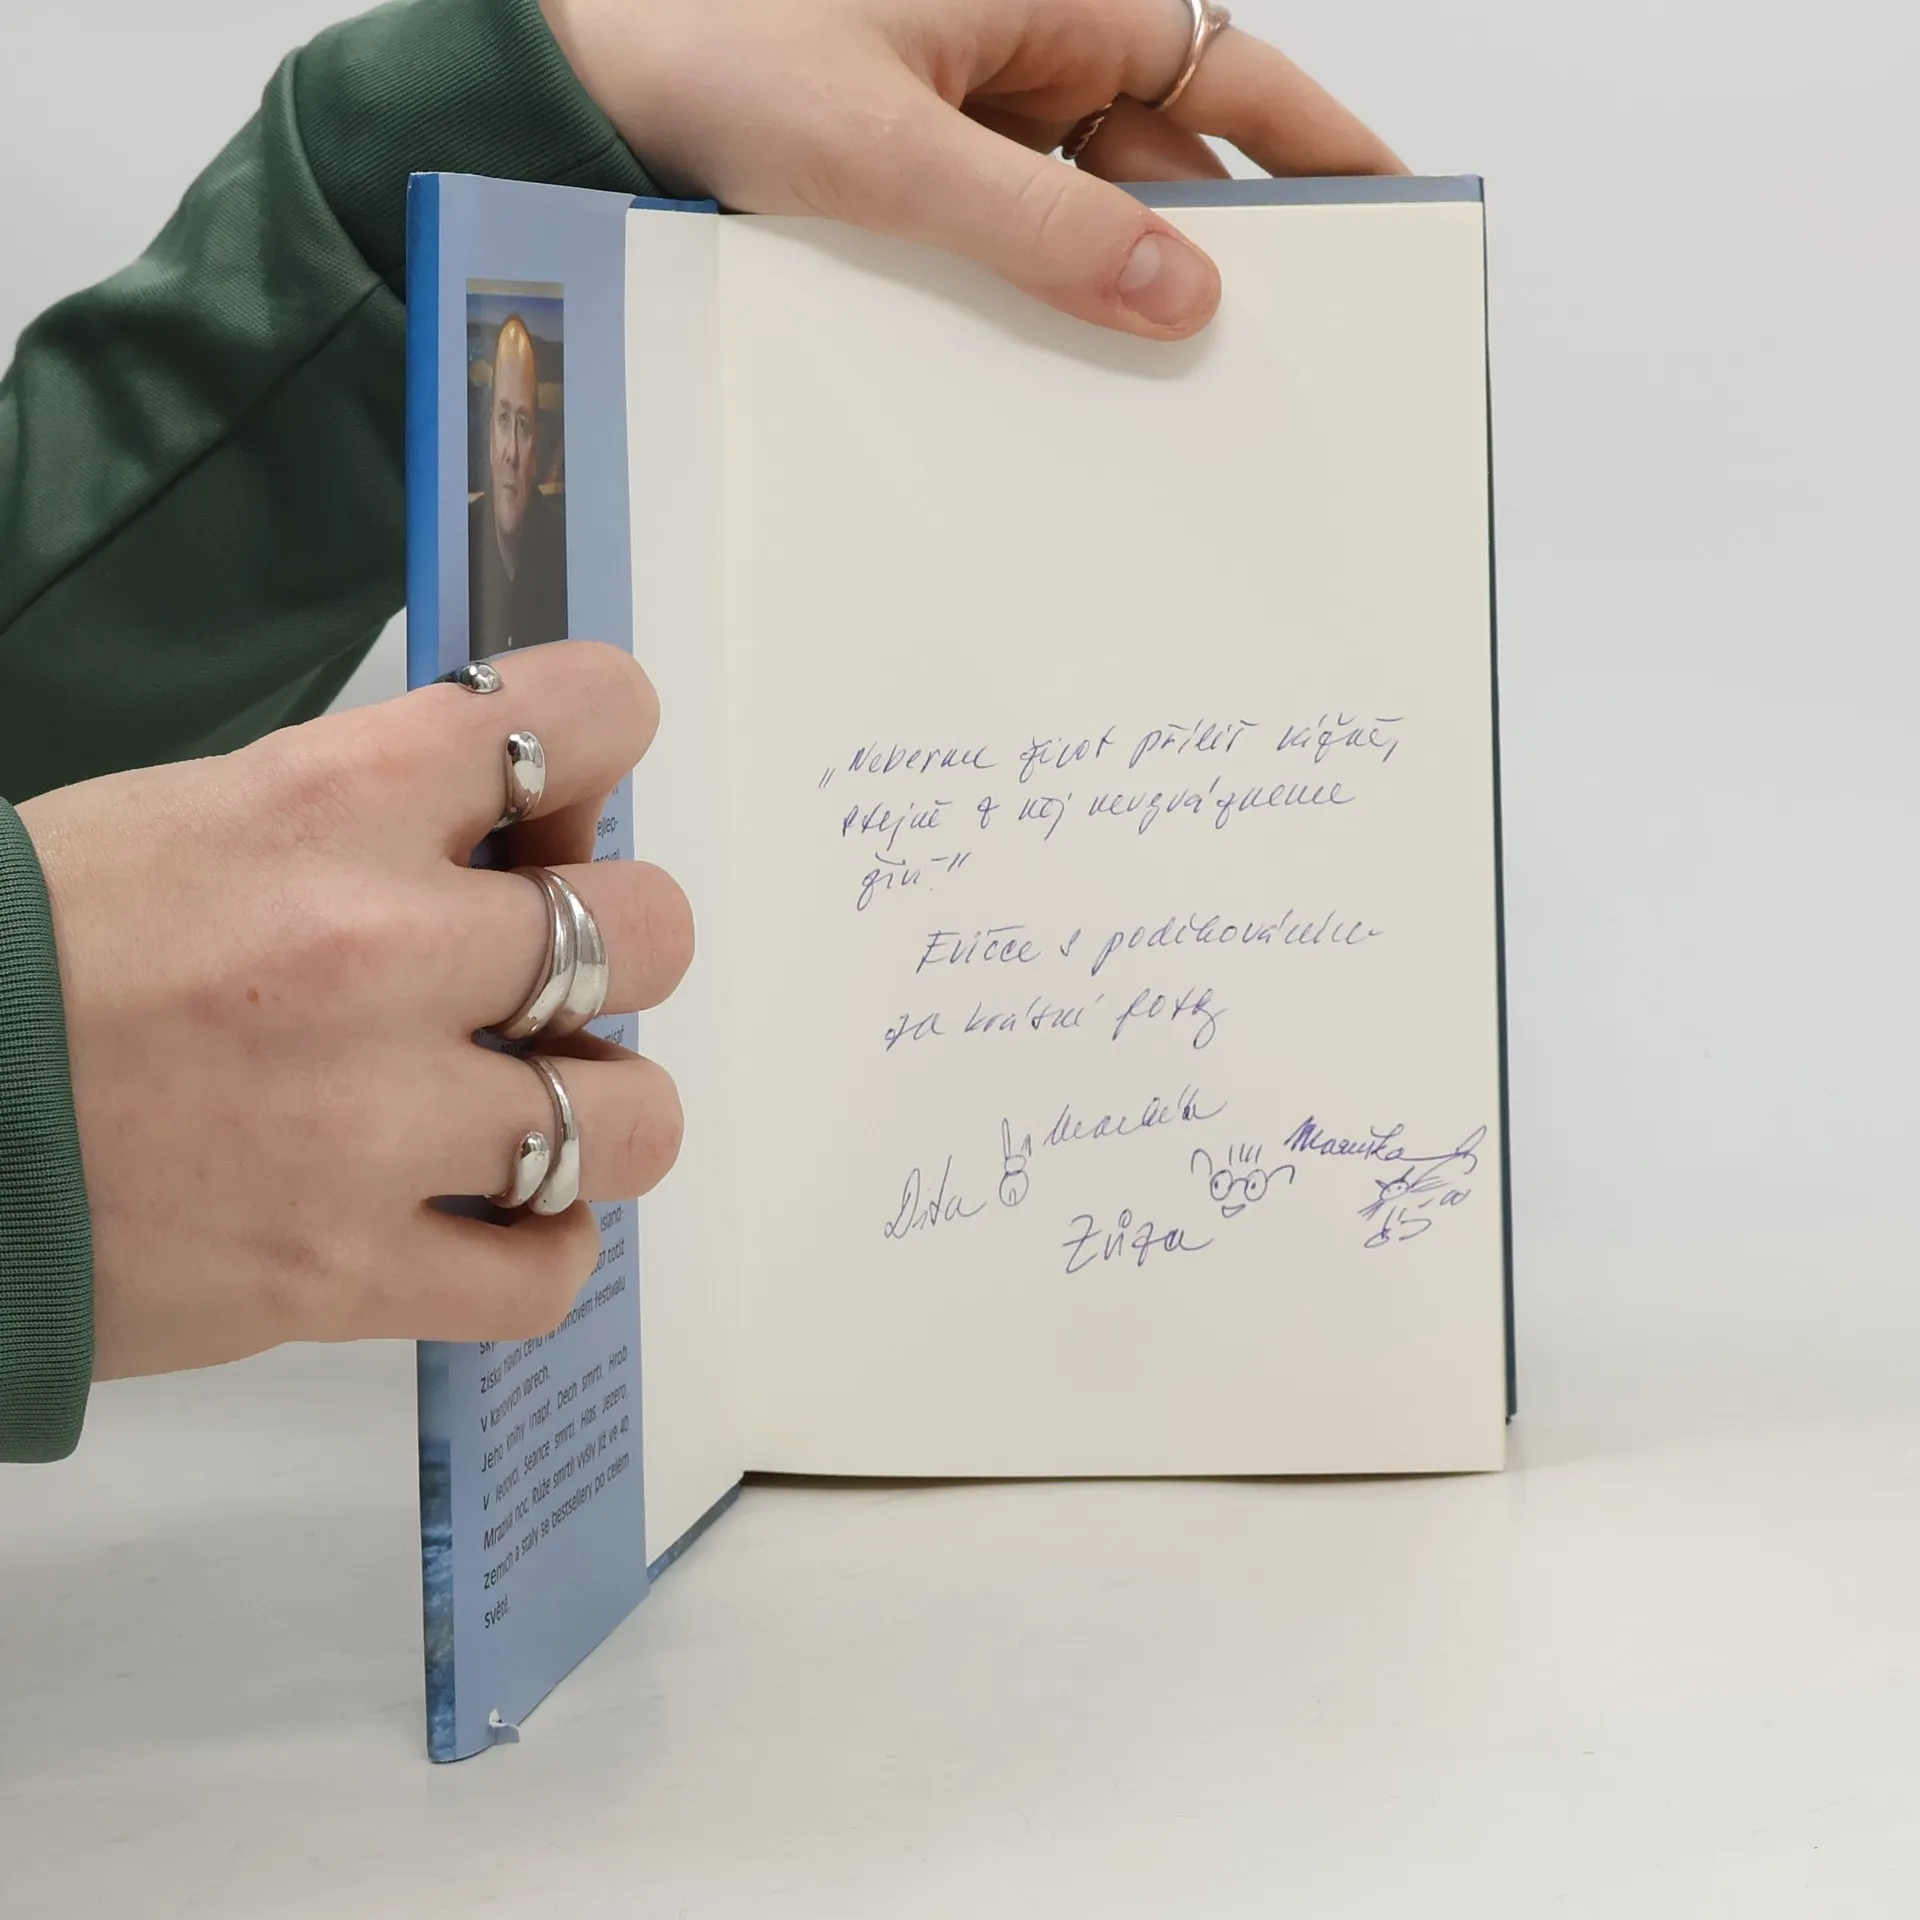 ejlep-
island-
2007 totiž
filmovém festivalu
získal hlavní cenu na
v Karlových Varech.
Jeho knihy (např. Dech smrti, Hrob
v ledovci, Séance smrti, Hlas, Jezero,
Mrazivá noc, Růže smrti) vyšly již ve 40
zemích a staly se bestsellery po celém
světě.
„Neberme život příliš vážně,
stejně z něj nevyvázneme
živi.“
Evičce s poděkováním
za krásné fotky
Dita
Zůza
Maruška